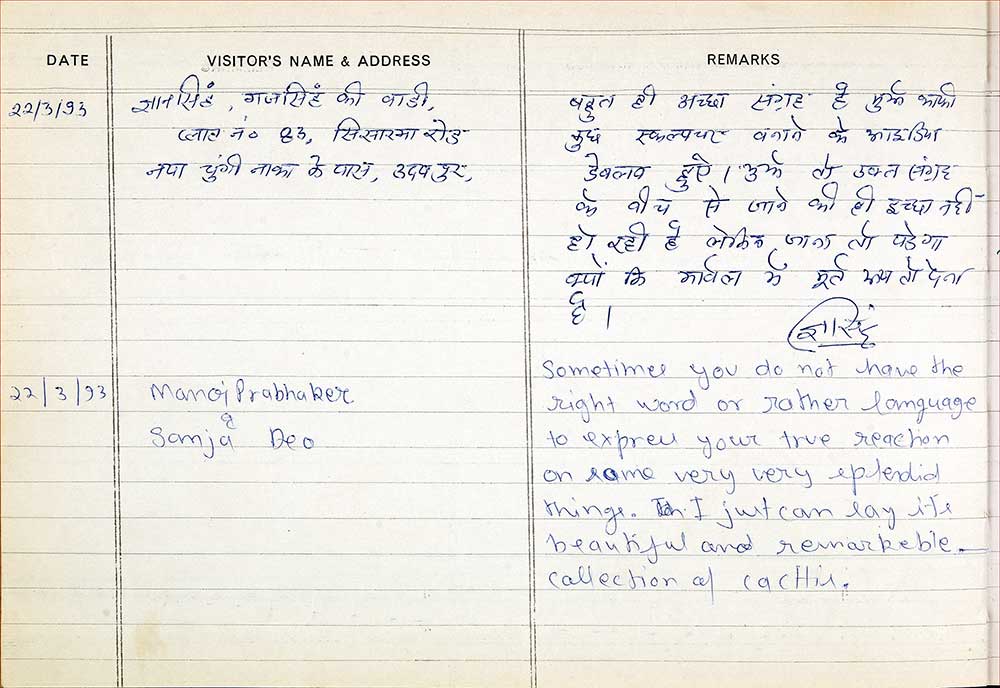 DATE
VISITOR'S NAME & ADDRESS
REMARKS
22/3/93
ज्ञानसिहं, गजसिहं की वाडी,
प्लाट नं० 83, सिसारमा रोड
नया चुंगी नाका के पास, उदयपुर,
बहुत ही अच्छा संग्रह है मुझे काफी
कुछ स्कल्पचर बनाने के आइडिया
डेवलव हुऐ। मुझे तो उक्त संग्रह
के बीच से जाने की ही इच्छा नहीं
हो रही है लेकिन जाना तो पडेगा
क्यों कि मार्बल में मूर्त रूप तो देना
है।
22/3/93
Manoj Prabhaker
&
Sanja Deo
Sometimes you do not have the
right word or rather language
to express your true reaction
on some very very splendid
things. I just can say its
beautiful and remarkeble
collection of cactii.